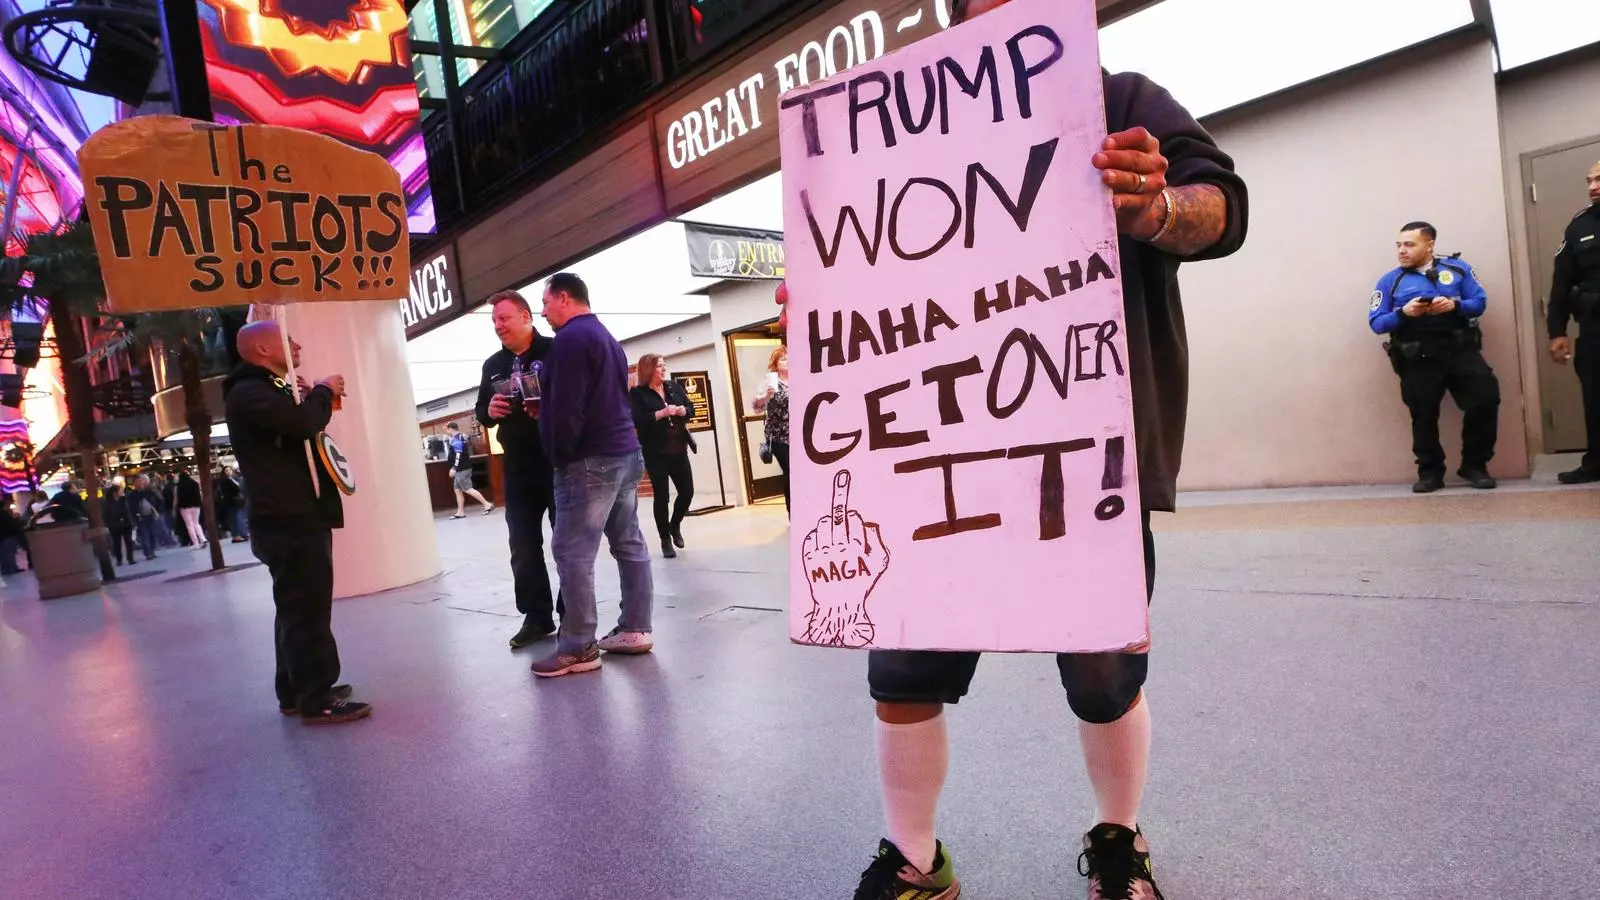 The
PATRIOTS
SUCK!!!
GREAT FOOD ~
ANCE
ENTRA
TRUMP
WON
HAHA HAHA
GET OVER
IT!
MAGA
G